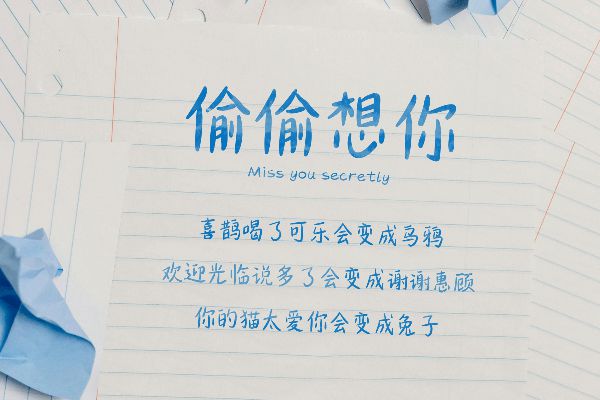 偷偷想你
Miss you secretly
喜鹊喝了可乐会变成乌鸦
欢迎光临说多了会变成谢谢惠顾
你的猫太爱你会变成兔子